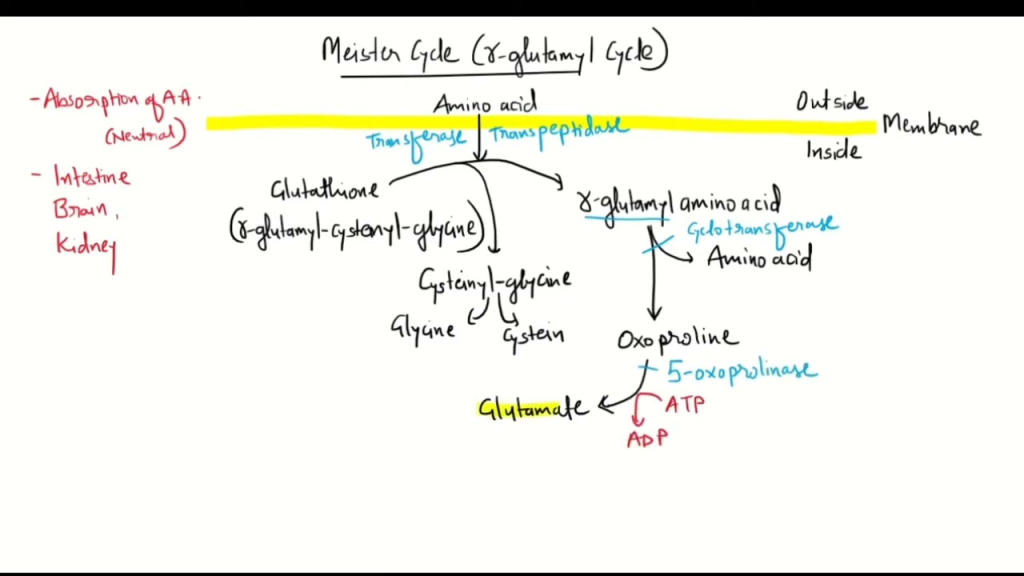 Meister Cycle (γ-glutamyl Cycle)
- Absorption of A.A.
(Neutral)
- Intestine
Brain,
Kidney
Amino acid
Outside
Membrane
Inside
Transferase
Transpeptidase
Glutathione
(γ-glutamyl-cystenyl-glycine)
γ-glutamyl amino acid
Cyclotransferase
Amino acid
Cysteinyl-glycine
Glycine
Cystein
Oxoproline
5-oxoprolinase
Glutamate
ATP
ADP